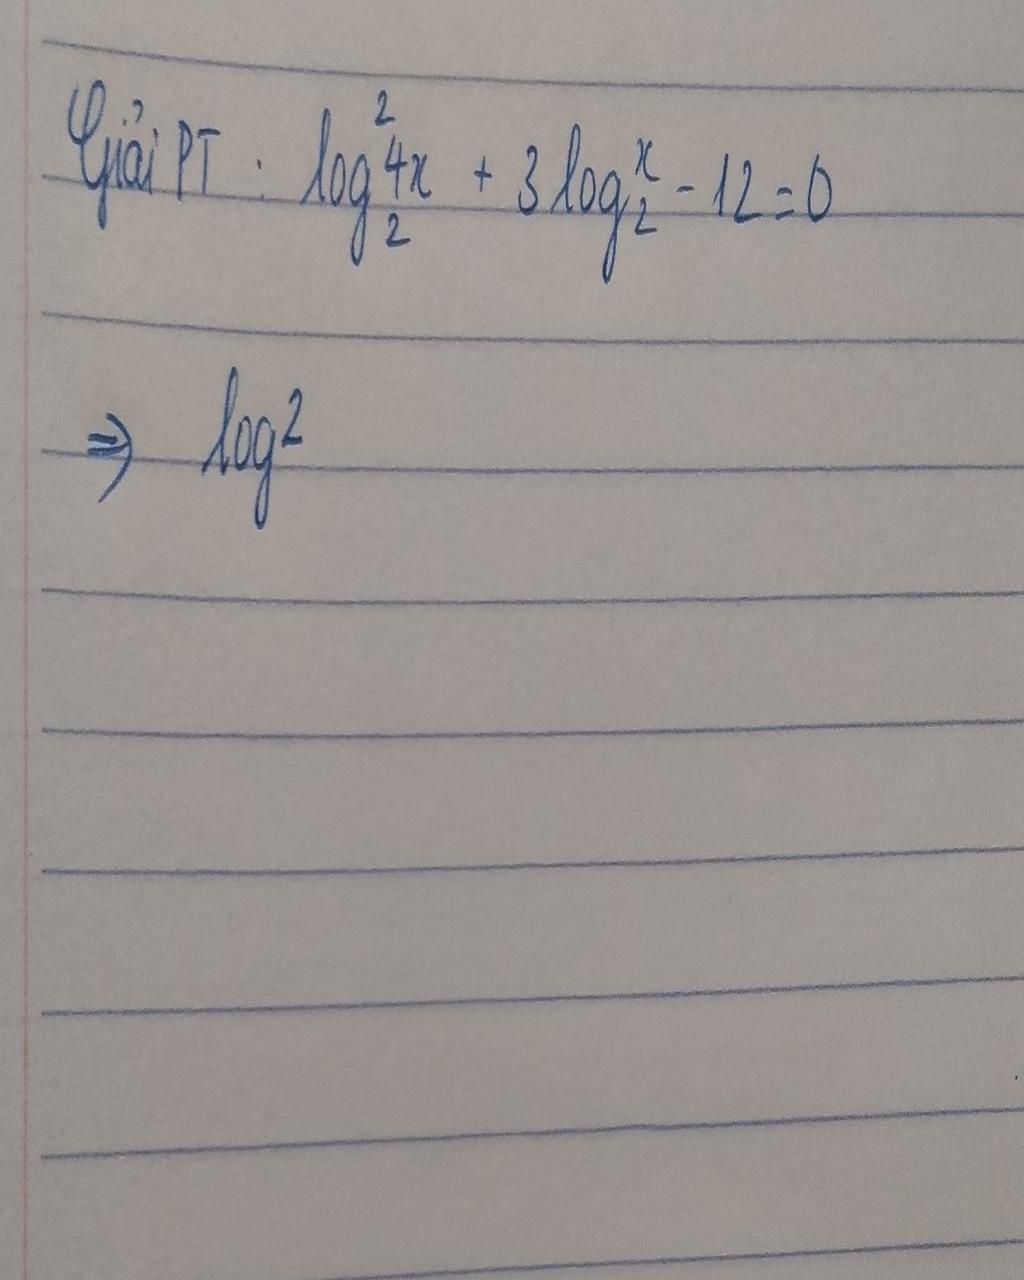 Giải PT : log₂² 4x + 3 log₂ x - 12 = 0
⇒ log²